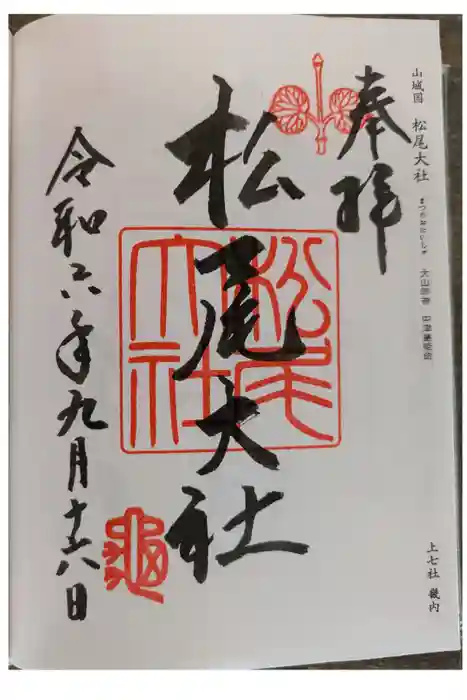 山城国 松尾大社 まつのおたいしゃ
上七社 畿内
奉拝
松尾大社
松尾
大社
令和六年九月十六日